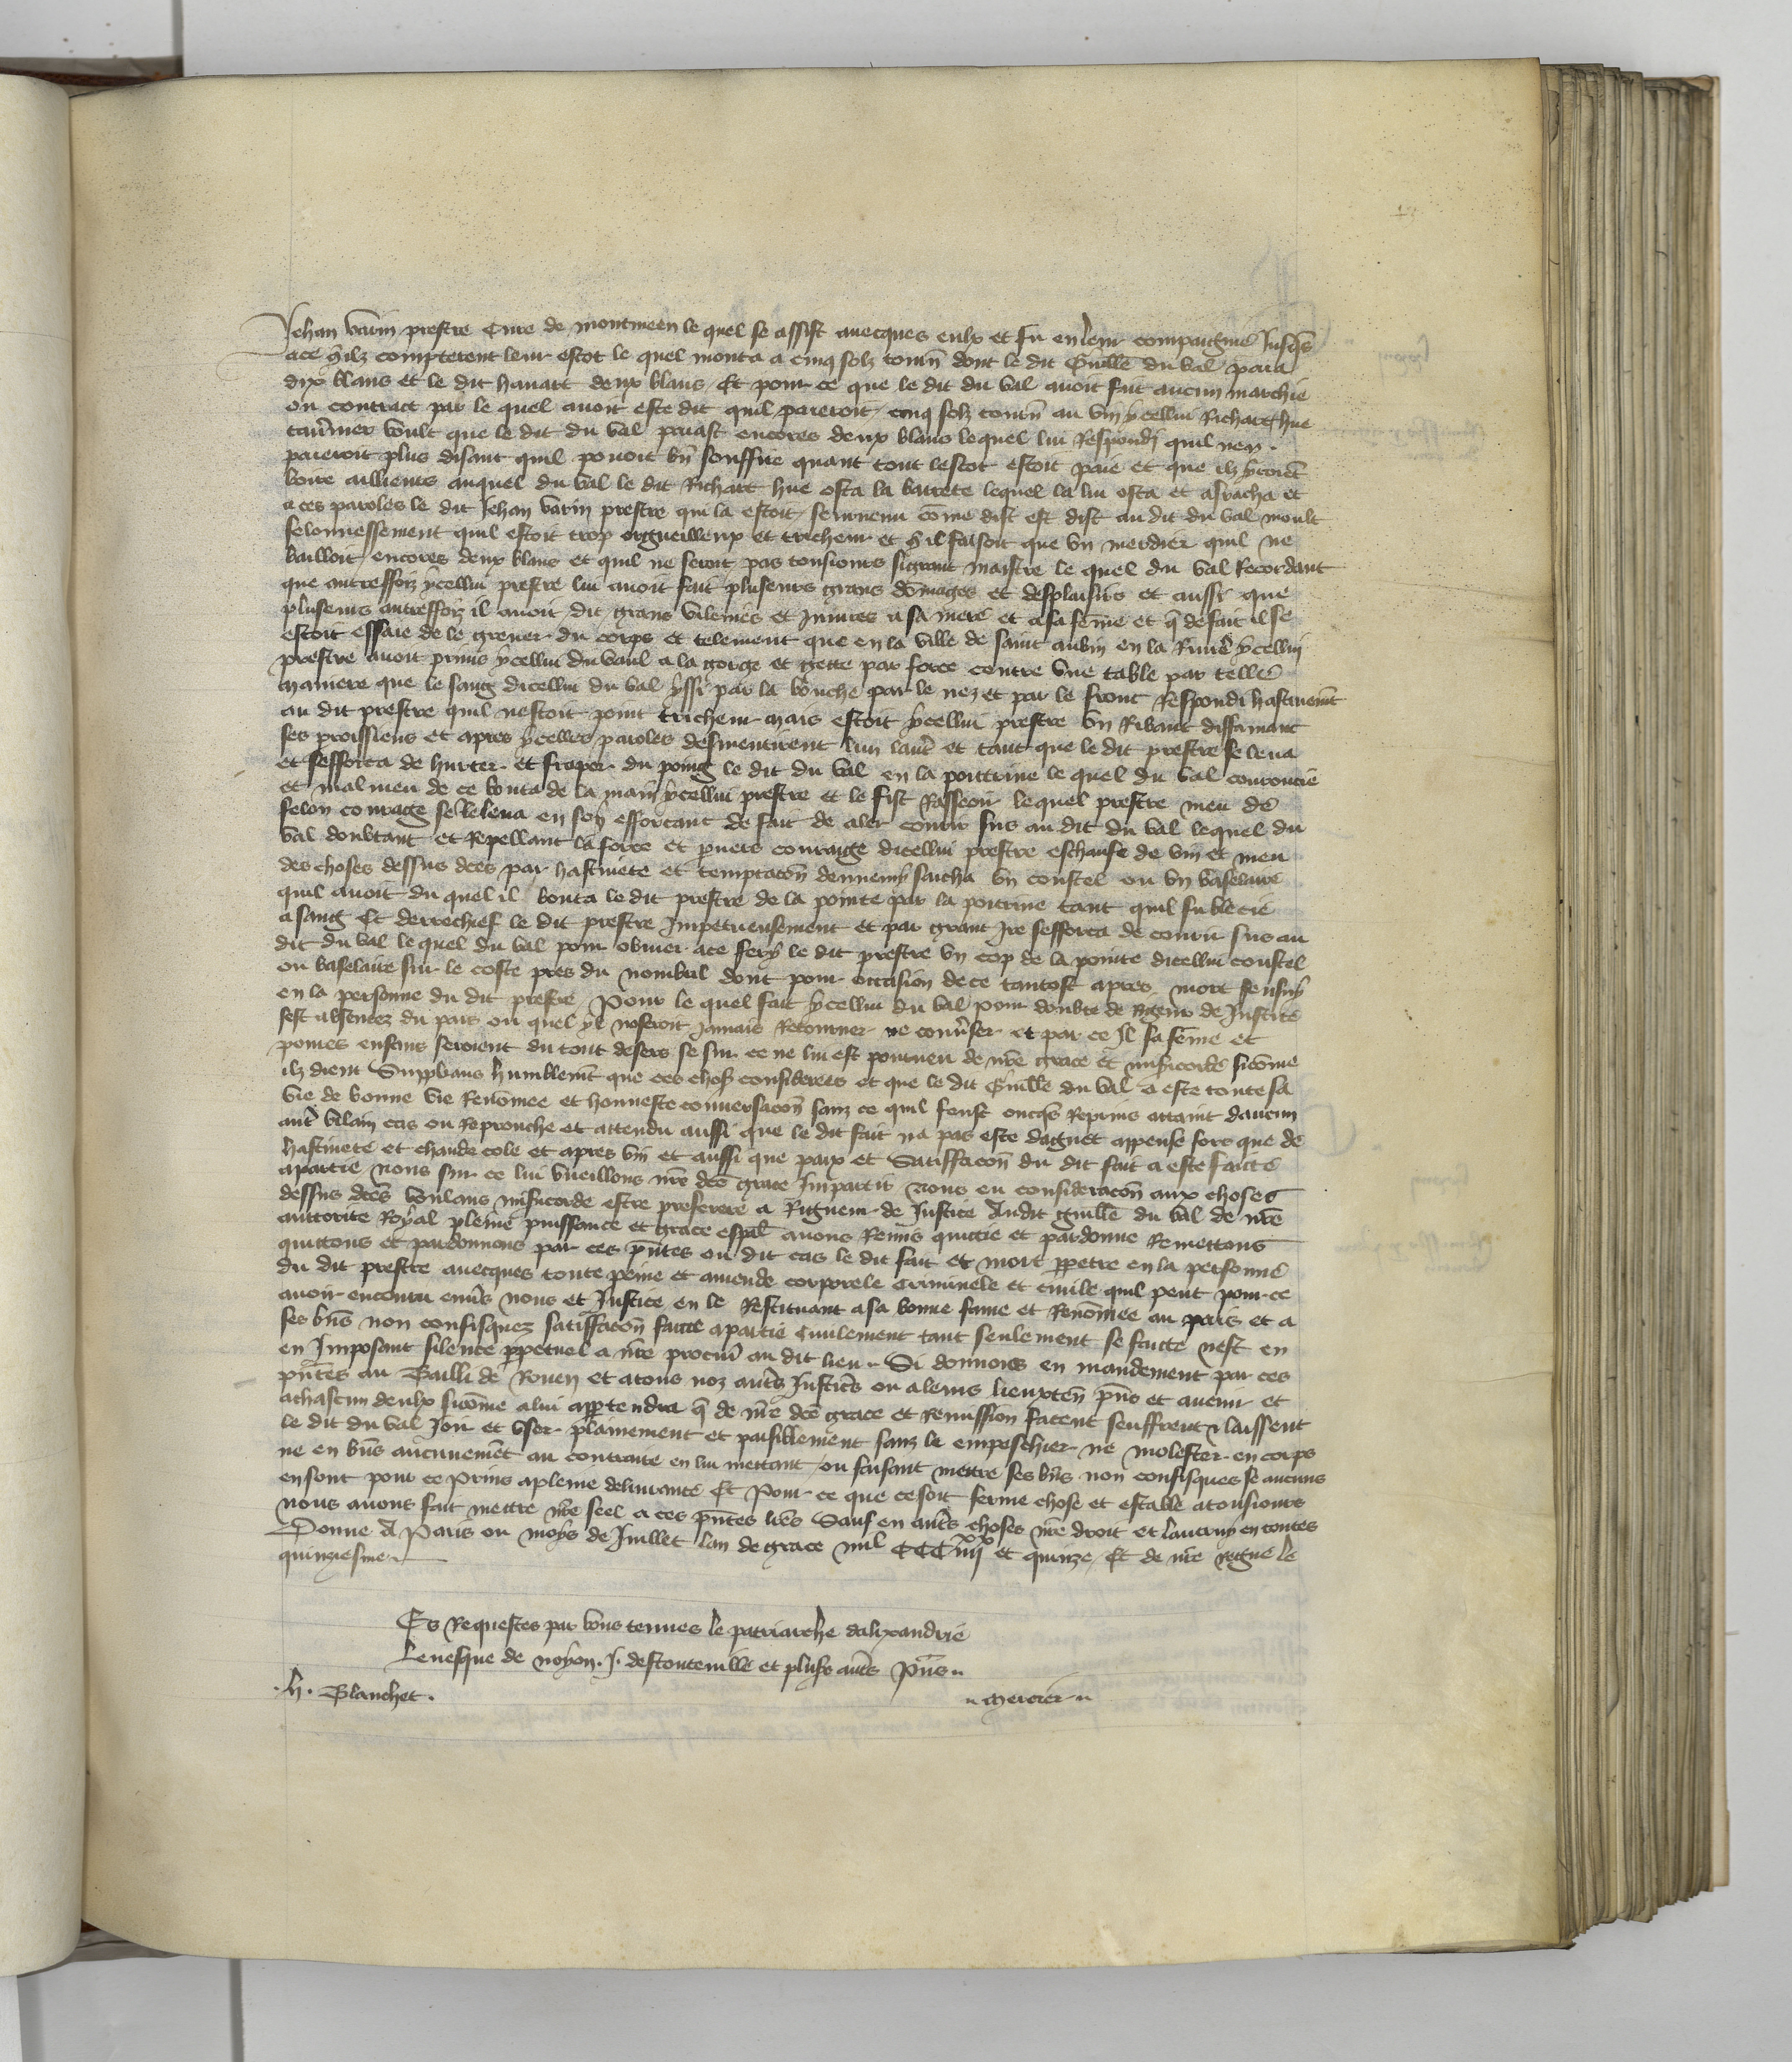 Jehan varin prestre Cure de montmeen le quel se assist avecques eulx et fu en leur compaignie Jusqs
ace qilz compterent leur escot le quel monta a cinq solz tourn dont le dit Guille du val paia
dix blans et le dit havart deux blans Et pour ce que le dit du val avoit fait aucun marchie
ou contract par le quel avoit este dit quil paieroit cinq solz tourn au vin ycellui Richart hue
tavernier voult que le dit du val paiast encores deux blans lequel lui Respondi quil nen
paieroit plus disant quil povoit bn souffire quant tout lescot estoit paie et que ilz yroiet
boire aillieurs auquel du val le dit Richart hue osta la barrete lequel la lui osta et asracha et
a ces paroles le dit Jehan varin prestre qui la estoit seurvenu come dist est dist au dit du val moult
felonnessement quil estoit trop orgueilleux et tricheur et qil faisoit que un merdier quil ne
bailloit encores deux blans et quil ne seroit pas tousiours si grant maistre le quel du val Recordant
que autreffoiz ycellui prestre lui avoit fait pluseurs grans domages et desplaisirs et aussi que
pluseurs autreffoiz il avoit dit grans vilenies et Iniures a sa mere et a sa feme et q de fait il se
estoit essaie de le grever du corps et telement que en la ville de saint aubin en la Rivie ycellui
prestre avoit prins ycellui du vaul a la gorge et gette par force contre une table par telle
maniere que le sang dicellui du val yssi par la bouche par le nez et par le front Respondi hastivemt
au dit prestre quil nestoit point tricheur mais estoit ycellui prestre un Ribaut diffamant
ses proissiens et apres ycelles paroles desmentirent lun laut et tant que le dit prestre se leva
et sefforca de hurter et fraper du poing le dit du val en la poittrine le quel du val courroucie
et mal meu de ce bouta de la main ycellui prestre et le fist Rasseoir lequel prestre meu de
felon courage se leleva en soy efforcant de fait de aler courir sus au dit du val lequel du
val doubtant et Repellant la force et pvers couraige dicellui prestre eschaufe de vin et meu
des choses dessus dces par hastivete et temptacon dennemy sacha un coustel ou un baselaire
quil avoit du quel il bouta le dit prestre de la pointe par la poitrine tant quil fu blecie
a sang Et derrechief le dit prestre Impetueusement et par grant Ire sefforca de courir sus au
dit du val le quel du val pour obvier a ce fery le dit prestre un cop de la pointe dicellui coustel
ou baselaire sur le coste pres du nombril dont pour occasion de ce tantost apres mort sensuy
en la personne du dit prestre Pour le quel fait ycellui du val pour doubte de Rigeur de Justice
sest absentez du pais ou quel yl noseroit jamais Retourner ne conuser et par ce Il sa feme et
poures enfans seroient du tout desers se sur ce ne lui est pourveu de nre grace et misericorde sicome
ilz dient Supplians humblemt que ces chos considerees et que le dit Guille du val a este toute sa
vie de bonne vie Renomee et honneste conversacon sanz ce quil feust oncqs Reprins attaint daucun
aut vilain cas ou Reprouche et attendu aussi que le dit fait na pas este daguet appense fors que de
hastivete et chaude cole et apres vin et aussi que paix et Satiffacon du dit fait a este faicte
a partie Nous sur ce lui vueillons nre dce grace Impartir Nous eu consideracon aux choses
dessus dces voulans misericorde estre preferee a Rigueur de Justice Audit guille du val de nre
auctorite Royal pleine puissance et grace espal avons Remis quictie et pardonne Remettons
quittons et pardonnons par ces pntes ou dit cas le dit fait et mort ppetre en la personne
du dit prestre avecques toute peine et amende corporele Criminele et civile quil peut pour ce
avoir encouru envs nous et Justice en le Restituant a sa bonne fame et Renomee au pais et a
ses bns non confisquez satiffacon faicte a partie Civilement tant seulement se faicte nest en
en Imposant silence ppetuel a nre procur au dit lieu Si donnons en mandement par ces
pntes au Bailli de Rouen et a tous noz auts Justics ou a leurs lieuxten pns et avenir et
a chascun deulx sicome a lui apptendra q de nre dce grace et Remission facent seuffrent & laissent
le dit du val Joir et user plainement et paisiblement sanz le empeschier ne molester en corps
ne en bns aucunemet au contraire en lui mettant ou faisant mettre ses bns non confisques se aucuns
en sont pour ce prins a pleine delivrance Et Pour ce que ce soit ferme chose et estable a tousiours
nous avons fait mettre nre seel a ces pntes lres Sauf en auts choses nre droit et lautruy en toutes
Donne A Paris ou moys de Juillet lan de grace mil CCC iiijxx et quinze Et de nre regne le
quinziesme
Es Requestes par vous tenues le patriarche dalixandrie
Levesque de noyon . J . destouteville et plus auts pns
. h . Blanchet .
mercier